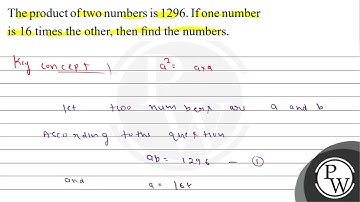 The product of two numbers is 1296. If one number
is 16 times the other, then find the numbers.
Key concept | a² = a×a
let two numbers are a and b
According to the question
ab = 1296 — ①
and a = 16
P
W